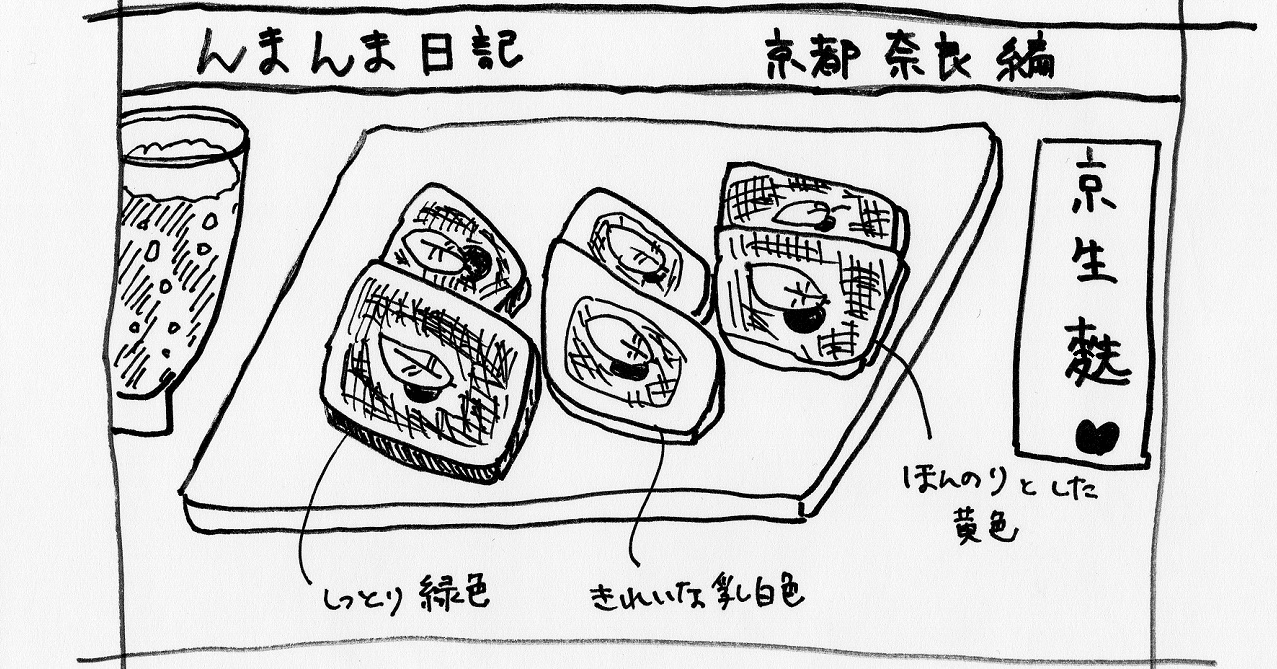 んまんま日記
京都 奈良 編
京生麩♥
ほんのりとした
黄色
しっとり 緑色
きれいな 乳白色